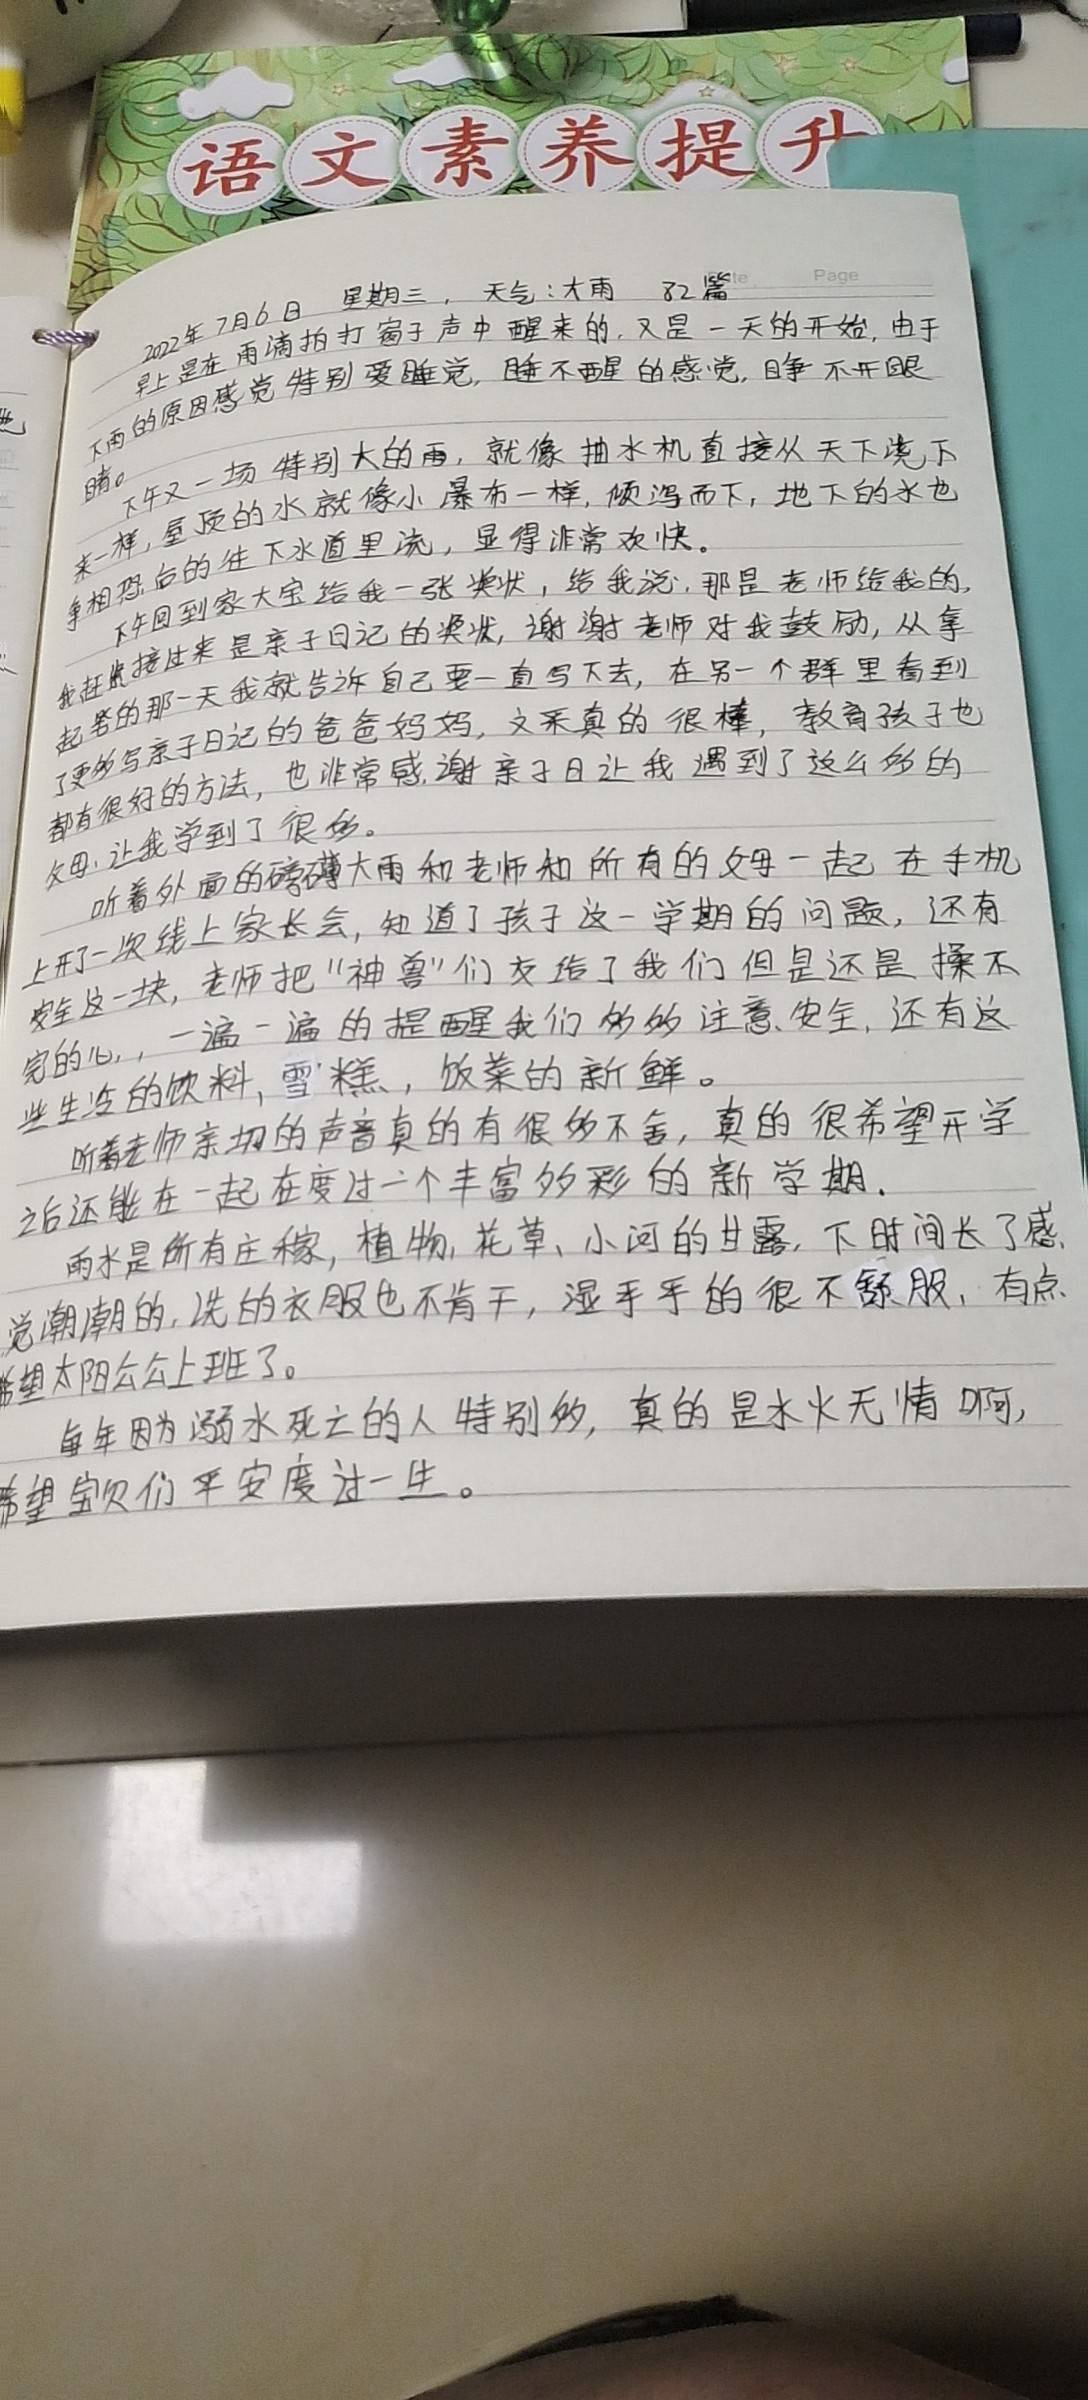 语文素养提升
Date Page
2022年7月6日 星期三，天气：大雨 82篇
早上是在雨滴拍打窗子声中醒来的，又是一天的开始，由于
下雨的原因感觉特别爱睡觉，睡不醒的感觉，睁不开眼
睛。
下午又一场特别大的雨，就像抽水机直接从天下浇下
来一样，屋顶的水就像小瀑布一样，倾泻而下，地下的水也
争相恐后的往下水道里流，显得非常欢快。
下午回到家大宝给我一张奖状，给我说，那是老师给我的，
我赶紧接过来是亲子日记的奖状，谢谢老师对我鼓励，从拿
起笔的那一天我就告诉自己要一直写下去，在另一个群里看到
了更多写亲子日记的爸爸妈妈，文采真的很棒，教育孩子也
都有很好的方法，也非常感谢亲子日让我遇到了这么多的
父母，让我学到了很多。
听着外面的磅礴大雨和老师和所有的父母一起在手机
上开了一次线上家长会，知道了孩子这一学期的问题，还有
安全这一块，老师把“神兽”们交给了我们但是还是操不
完的心，，一遍一遍的提醒我们多多注意、安全，还有这
些生冷的饮料，雪糕，饭菜的新鲜。
听着老师亲切的声音真的有很多不舍，真的很希望开学
之后还能在一起在度过一个丰富多彩的新学期.
雨水是所有庄稼，植物，花草、小河的甘露，下时间长了感
觉潮潮的，洗的衣服也不肯干，湿手手的很不舒服，有点
希望太阳公公上班了。
每年因为溺水死亡的人特别多，真的是水火无情啊，
希望宝贝们平安度过一生。